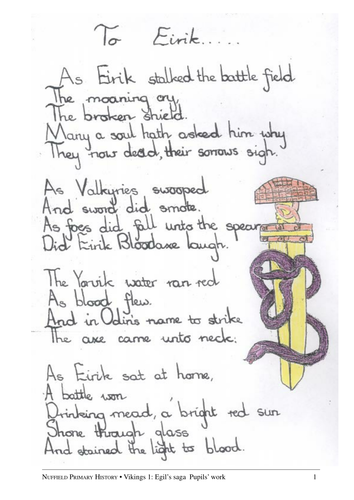 To Eirik.....
As Eirik stalked the battle field
The moaning cry,
The broken shield.
Many a soul hath asked him why
They now dead, their sorrows sigh.
As Valkyries swooped
And sword did smote.
As foes did fall unto the spear
Did Eirik Bloodaxe laugh.
The Yorvik water ran red
As blood flew.
And in Odin's name to strike
The axe came unto neck.
As Eirik sat at home,
A battle won
Drinking mead, a bright red sun
Shone through glass
And stained the light to blood.
NUFFIELD PRIMARY HISTORY • Vikings 1: Egil's saga Pupils' work 1